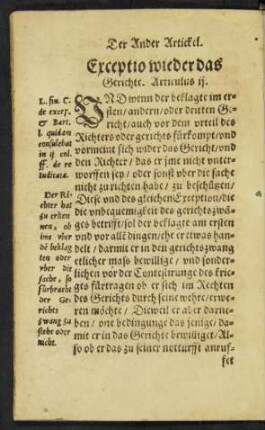 Der Ander Artickel.
Exceptio wieder das
Gerichte. Articulus ij.
L. fin. C.
de excep.
& Bart.
l. quidam
consulebat
in ij col.
ff. de re
iudicata.
Der Rich-
ter hat
zu erken
nen, ob
ime uber
den beklag
ten oder
uber die
sache, so
fürbracht
der Ge-
richts
zwang zu
stehe oder
nicht.
VND wenn der beklagte im er-
sten / andern / oder dritten Ge-
richt / auch vor dem vrteil des
Richters oder gerichts fürkompt / vnd
vormeint sich wider das Gericht / vnd
den Richter / das er jme nicht vnter-
worffen sey / oder sonst vber die sache
nicht zu richten habe / zu beschützen /
Diese vnd des gleichen Exception / die
die vnbequemigkeit des gerichtszwã-
ges betrifft / sol der beklagte am ersten
vnd vor alle dingen / ehe er etwas han-
delt / darmit er in den gerichtszwang
etlicher mass bewillige / vnd sonder-
lichen vor der Contestirunge des krie-
ges fürtragen ob er sich im Rechten
des Gerichts durch seine wehre / erwe-
ren möchte / Dieweil er aber darne-
ben / one bedingunge das jenige / da-
mit er in das Gerichte bewilliget / Al-
so ob er das zu seiner notturfft anruf-
fet